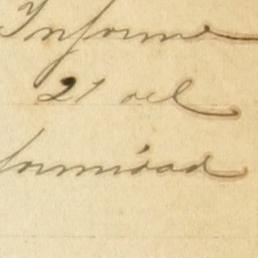 Informe
21 del
formidad